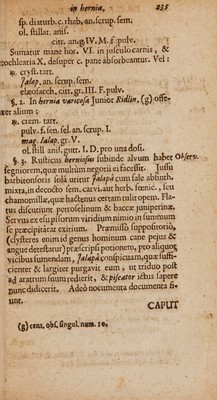 in hernia, 235
sp. diaturb. c. rhab. an. scrup. sem.
ol. stillat. anis.
citr. an. g. IV. M. f. pulv.
Sumatur mane hor. VI. in jusculo carnis, &
cochlearia X, desuper c. pane absorbeantur. Vel:
℞ cryst. tart.
Jalap. an. scrup. sem.
elæosacch. citr. gr. III. F. pulv.
§. 2. In hernia varicosa Junior Ridlin, (g) oste-
alium:
℞ crem. tart.
pulv. f. sen. sel. an. scrup. I.
mag. Jalap. gr. V.
ol. still anis. gutt. I. D. pro una dosi.
§ 3. Rusticus herniosus subinde alvum habet Observ.
segniorem, quæ multùm negotii ei facessit. Jussu
barbitonsoris solâ utitur Jalapâ cum sale absinth.
mixta, in decocto sem. carvi, aut herb. fœnic. seu
chamomillæ, quæ hactenus certam tulit opem. Fla-
tus discutiunt petroselinum & baccæ juniperinæ.
Servus ex esu pisorum viridium nimio in summum
se præcipitârat exitium. Præmisso suppositorio,
(clysteres enim id genus hominum cane pejus &
angue detestatur) præscripsi potionem, pro aliquot
vicibus sumendam, Jalapâ conspicuam, quæ suffi-
cienter & largiter purgavit eum, ut triduo post
ad aratrum suum redierit, & piscator ictus sapere
nunc didicerit. Adeò nocumenta documenta fi-
unt.
CAPUT
(g) cent. obs. singul. num. 10.